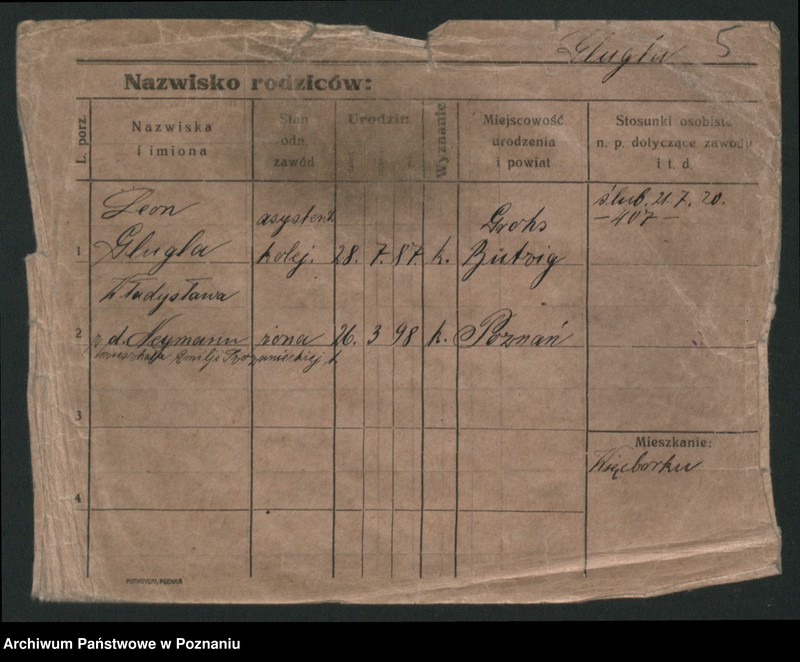 Glugla 5
Nazwisko rodziców:
L. porz.
Nazwiska
i imiona
Stan
odn.
zawód
Urodzin
Wyznanie
Miejscowość
urodzenia
i powiat
Stosunki osobiste
n. p. dotyczące zawodu
i t. d.
Leon
asystent.
Groks
ślub. 21. 7. 20.
— 407 —
1 Glugla kolej. 28. 7. 87. k. Zutzig
Władysława
2 z d. Neymann żona 26. 3 98 k. Poznań
3
Mieszkanie:
Więcborku
4
Archiwum Państwowe w Poznaniu